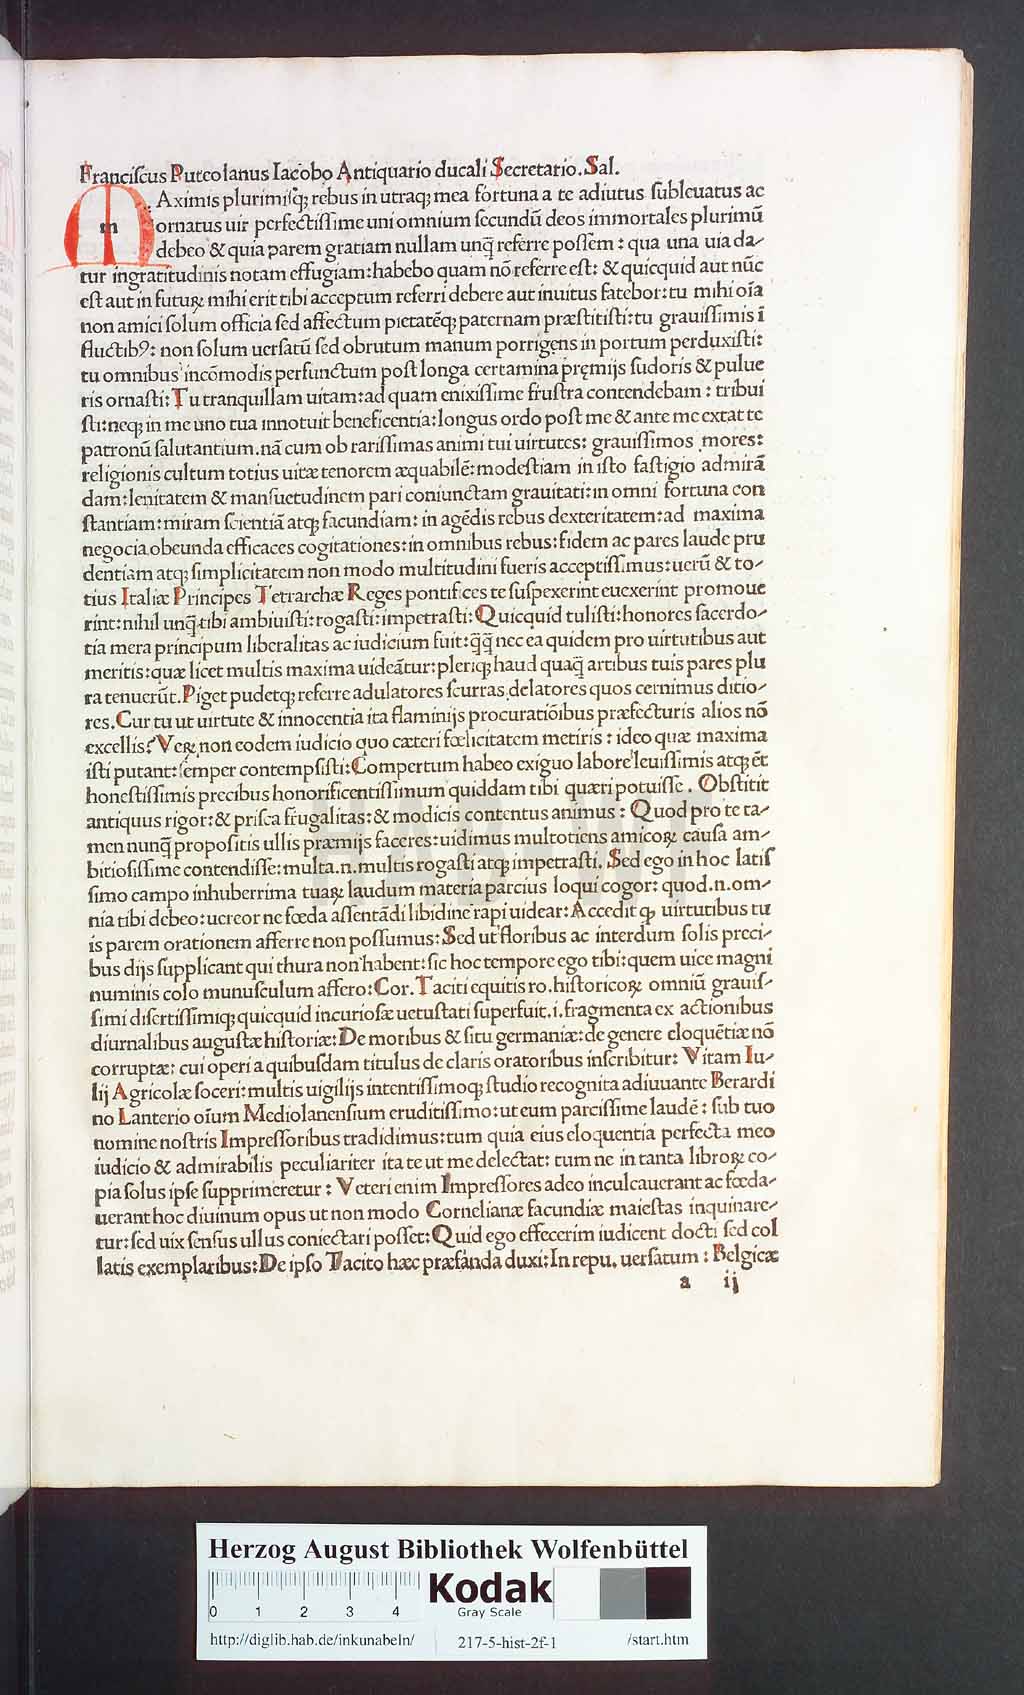 Franciſcus Puteolanus Iacobo Antiquario ducali Secretario. Sal.
m AXimis plurimiſq; rebus in utraq; mea fortuna a te adiutus ſubleuatus ac
ornatus uir perfectiſſime uni omnium ſecundū deos immortales plurimū
debeo & quia parem gratiam nullam unq̄ referre poſſem: qua una uia da-
tur ingratitudinis notam effugiam: habebo quam nō referre eſt: & quicquid aut nūc
eſt aut in futurꝝ mihi erit tibi acceptum referri debere aut inuitus fatebor: tu mihi oīa
non amici ſolum officia ſed affectum pietatēq; paternam præſtitiſti: tu grauiſſimis ī
fluctibꝰ: non ſolum uerſatū ſed obrutum manum porrigens in portum perduxiſti:
tu omnibus incōmodis perfunctum poſt longa certamina pręmijs ſudoris & pulue
ris ornaſti: Tu tranquillam uitam: ad quam enixiſſime fruſtra contendebam: tribui
ſti: neq; in me uno tua innotuit beneficentia: longus ordo poſt me & ante me extat te
patronū ſalutantium. nā cum ob rariſſimas animi tui uirtutes: grauiſſimos mores:
religionis cultum totius uitæ tenorem æquabilē: modeſtiam in iſto faſtigio admirā
dam: lenitatem & manſuetudinem pari coniunctam grauitati: in omni fortuna con
ſtantiam: miram ſcientiā atq; facundiam: in agēdis rebus dexteritatem: ad maxima
negocia obeunda efficaces cogitationes: in omnibus rebus: fidem ac pares laude pru
dentiam atq; ſimplicitatem non modo multitudini fueris acceptiſſimus: uerū & to-
tius Italiæ Principes Tetrarchæ Reges pontifices te ſuſpexerint euexerint promoue
rint: nihil unq̄ tibi ambiuiſti: rogaſti: impetraſti: Quicquid tuliſti: honores ſacerdo-
tia mera principum liberalitas ac iudicium fuit: q̄q̄ nec ea quidem pro uirtutibus aut
meritis: quæ licet multis maxima uideātur: pleriq; haud quaq̄ artibus tuis pares plu
ra tenuerūt. Piget pudetq; referre adulatores ſcurras delatores quos cernimus ditio-
res. Cur tu ut uirtute & innocentia ita flaminijs procuratiōibus præfecturis alios nō
excellis? Veꝝ non eodem iudicio quo cæteri fœlicitatem metiris: ideo quæ maxima
iſti putant: ſemper contempſiſti: Compertum habeo exiguo labore leuiſſimis atq; ēt
honeſtiſſimis precibus honorificentiſſimum quiddam tibi quæri potuiſſe. Obſtitit
antiquus rigor: & priſca frugalitas: & modicis contentus animus: Quod pro te ta-
men nunq̄ propoſitis ullis præmijs faceres: uidimus multotiens amicoꝝ cauſa am-
bitioſiſſime contendiſſe: multa .n. multis rogaſti atq; impetraſti. Sed ego in hoc latiſ
ſimo campo inhuberrima tuaꝝ laudum materia parcius loqui cogor: quod .n. om-
nia tibi debeo: uereor ne fœda aſſentādi libidine rapi uidear: Accedit ꝙ uirtutibus tu
is parem orationem afferre non poſſumus: Sed ut floribus ac interdum ſolis preci-
bus dijs ſupplicant qui thura non habent: ſic hoc tempore ego tibi: quem uice magni
numinis colo munuſculum affero: Cor. Taciti equitis ro. hiſtoricoꝝ omniū grauiſ-
ſimi diſertiſſimiq; quicquid incurioſæ uetuſtati ſuperfuit .i. fragmenta ex actionibus
diurnalibus auguſtæ hiſtoriæ: De moribus & ſitu germaniæ: de genere eloquētiæ nō
corruptæ: cui operi a quibuſdam titulus de claris oratoribus inſcribitur: Vitam Iu-
lij Agricolæ ſoceri: multis uigilijs intentiſſimoq; ſtudio recognita adiuuante Berardi
no Lanterio oīum Mediolanenſium eruditiſſimo: ut eum parciſſime laudē: ſub tuo
nomine noſtris Impreſſoribus tradidimus: tum quia eius eloquentia perfecta meo
iudicio & admirabilis peculiariter ita te ut me delectat: tum ne in tanta libroꝝ co-
pia ſolus ipſe ſupprimeretur: Veteri enim Impreſſores adeo inculcauerant ac fœda-
uerant hoc diuinum opus ut non modo Cornelianæ facundiæ maieſtas inquinare-
tur: ſed uix ſenſus ullus coniectari poſſet: Quid ego effecerim iudicent docti ſed col
latis exemplaribus: De ipſo Tacito hæc præfanda duxi: In repu. uerſatum: Belgicæ
a ij
HAB
Herzog August Bibliothek Wolfenbüttel
0 1 2 3 4
Kodak
Gray Scale
http://diglib.hab.de/inkunabeln/ 217-5-hist-2f-1 /start.htm